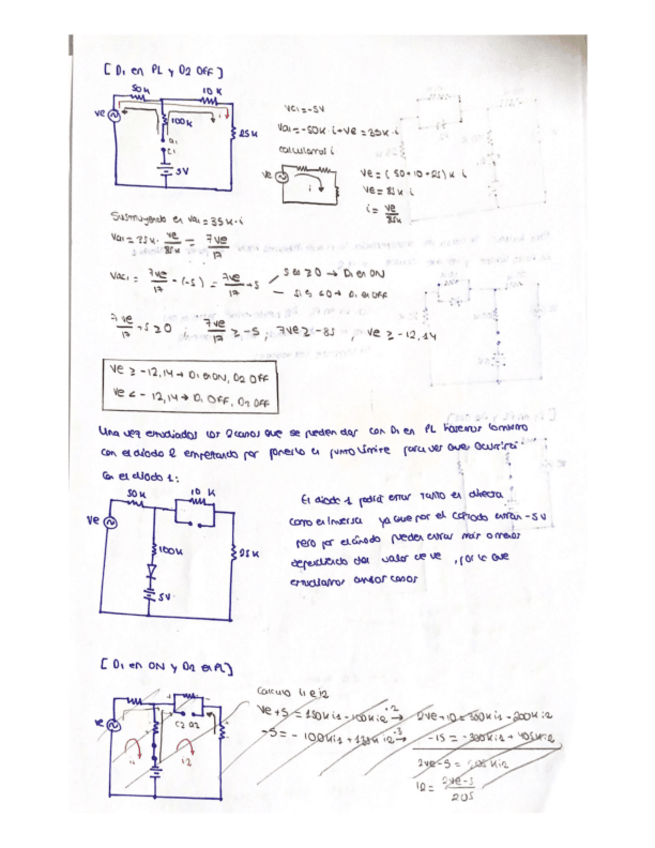 [ D1 en PL y D2 OFF ]
50K
10K
Ve
100K
a1
c1
25K
5V
Vc1 = -5V
Va1 = -50K·i+Ve = 35K·i
calculamos i
Ve
i
Ve = (50+10+25)K i
Ve = 85K i
i = Ve/85K
Sustituyendo en Va1 = 35K·i
Va1 = 35K · Ve/85K = 7Ve/17
Vac1 = 7Ve/17 - (-5) = 7Ve/17 + 5
Si es ≥0 → D1 en ON
Si es <0 → D1 en OFF
7Ve/17 + 5 ≥ 0 ; 7Ve/17 ≥ -5, 7Ve ≥ -85, Ve ≥ -12,14
Ve ≥ -12,14 → D1 en ON, D2 OFF
Ve < -12,14 → D1 OFF, D2 OFF
Una vez estudiados los 2 casos que se pueden dar con D1 en PL haremos lo mismo
con el diodo 2 empezando por ponerlo en punto límite para ver que ocurrirá
con el diodo 1:
50K
10 K
Ve
100K
25K
5V
El diodo 1 podrá estar tanto en directa
como en inversa ya que por el cátodo entran -5V
pero por el ánodo pueden entrar más o menos
dependiendo del valor de Ve, por lo que
estudiamos ambos casos
[ D1 en ON y D2 en PL ]
Ve
C2 a2
i1
i2
Calculo i1 e i2
Ve+5 = 150K i1 - 100K i2 ·2→ 2Ve+10 = 300K i1 - 200K i2
-5 = -100K i1 + 135K i2 ·3→ -15 = -300K i1 + 405K i2
2Ve-5 = 205K i2
i2 = 2Ve-5/205